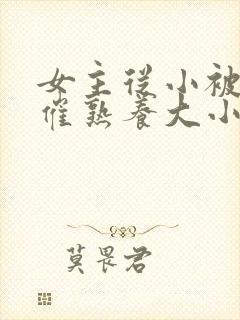 女主从小被
催熟养大小
莫畏君